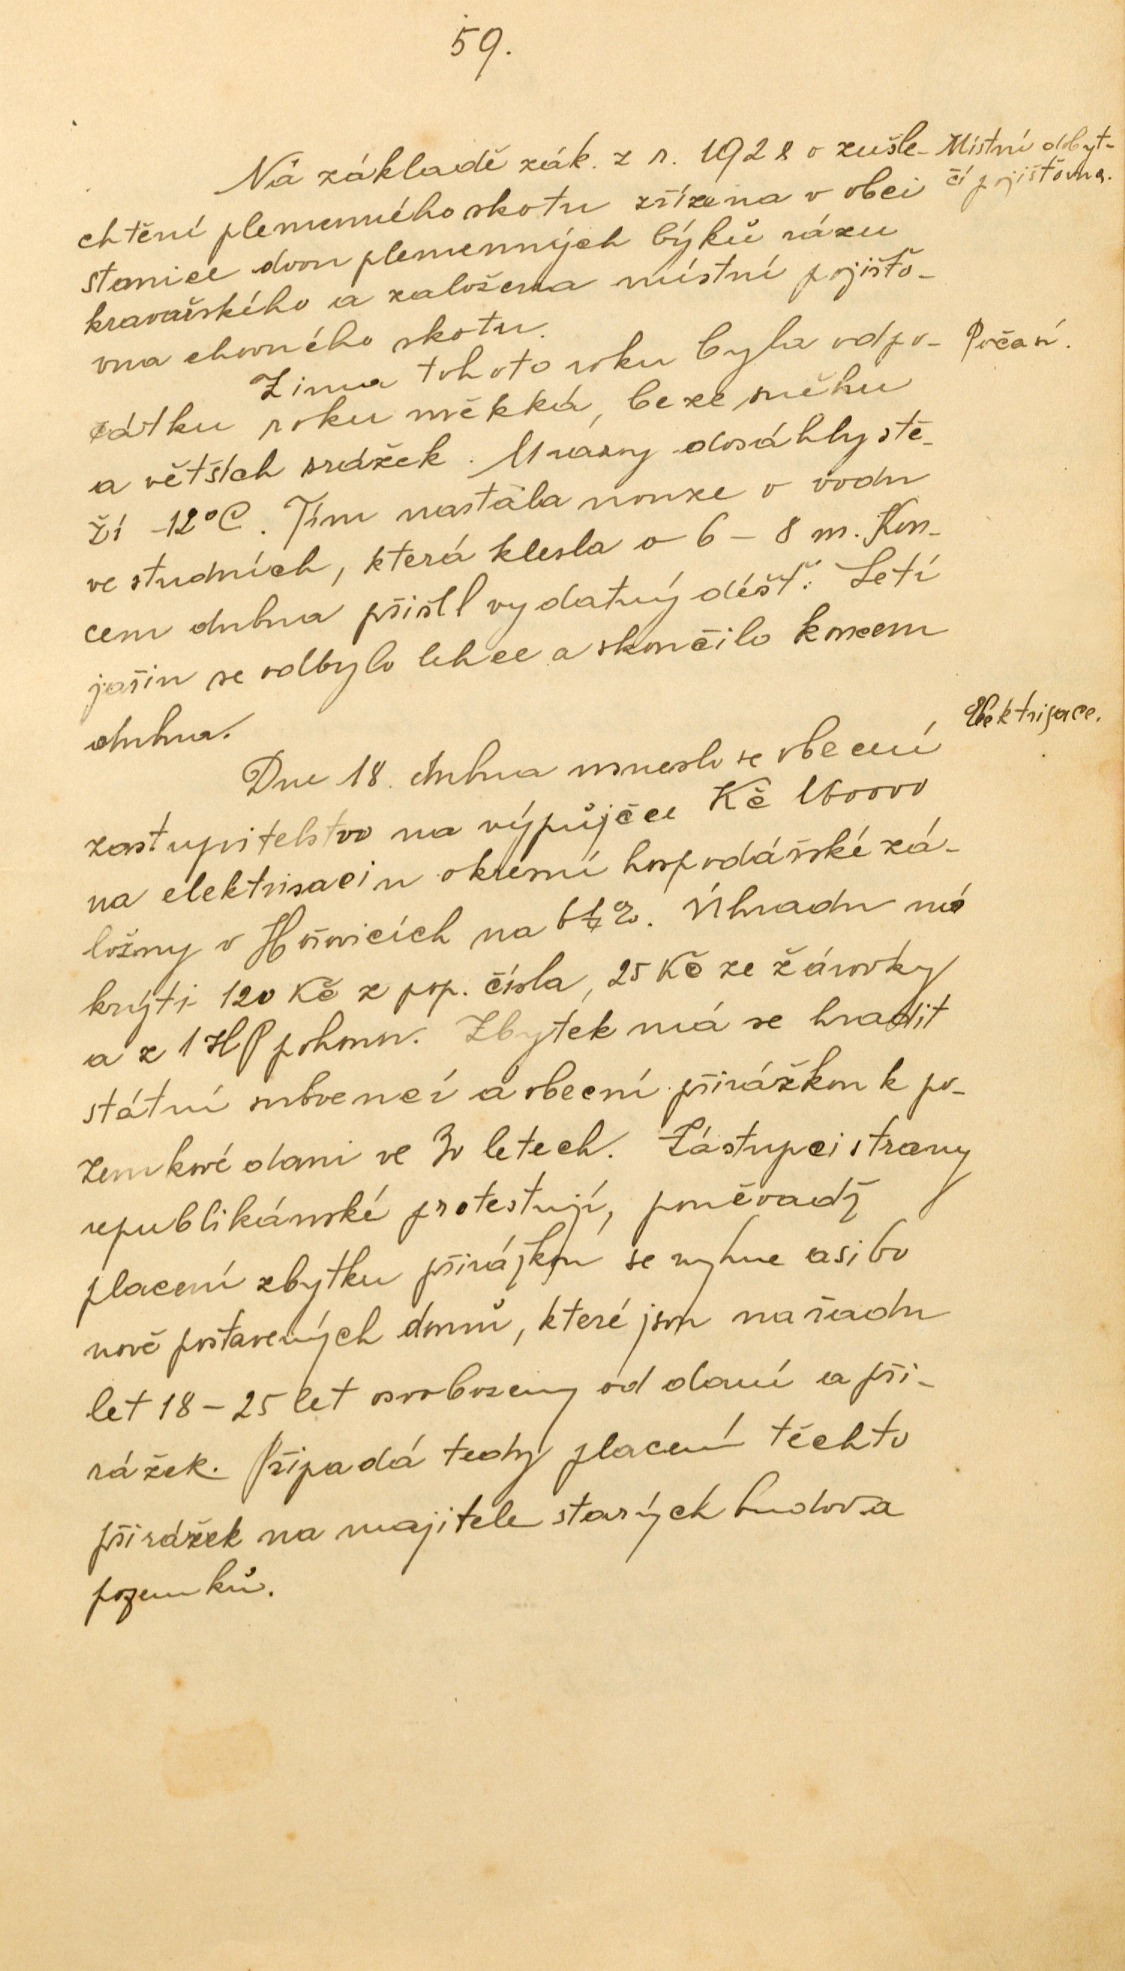 59.
Na základě zák. z r. 1928 o zušle-
Místní dobyt-
čí pojišťovna.
chtění plemenného skotu zřízena v obci
stanice dvou plemenných býků rázu
kravařského a založena místní pojišťo-
vna chovného skotu.
Zima tohoto roku byla od po-
Počasí.
čátku roku měkká, beze sněhu
a větších srážek. Mrazy dosáhly stě-
ží -12°C. Tím nastala nouze o vodu
ve studních, která klesla o 6 – 8 m. Kon-
cem dubna přišel vydatný déšť. Setí
jařin se odbylo lehce a skončilo koncem
dubna.
Elektrisace.
Dne 18. dubna usneslo se obecní
zastupitelstvo na výpůjčce Kč
na elektrisaci u okresní hospodářské zá-
ložny v Hořovicích na Úhradu má
krýti 120 Kč z pop. čísla, 25 Kč ze žárovky
a z 1 HP pohonu. Zbytek má se hradit
státní subvencí a obecní přirážkou k po-
zemkové dani ve 30 letech. Zástupci strany
republikánské protestují, poněvadž
placení zbytku přirážkou se vyhne asi 60
nově postavených domů, které jsou na řadu
let 18 – 25 let osvobozeny od daní a při-
rážek. Připadá tedy placení těchto
přirážek na majitele starých budov a
pozemků.